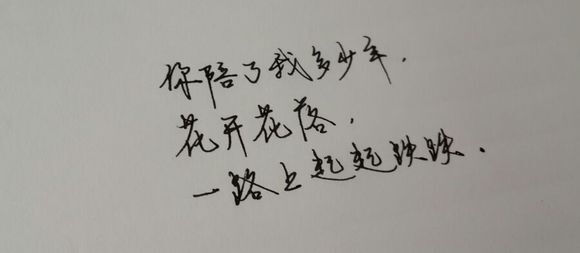 你陪了我多少年.
花开花落,
一路上起起跌跌.